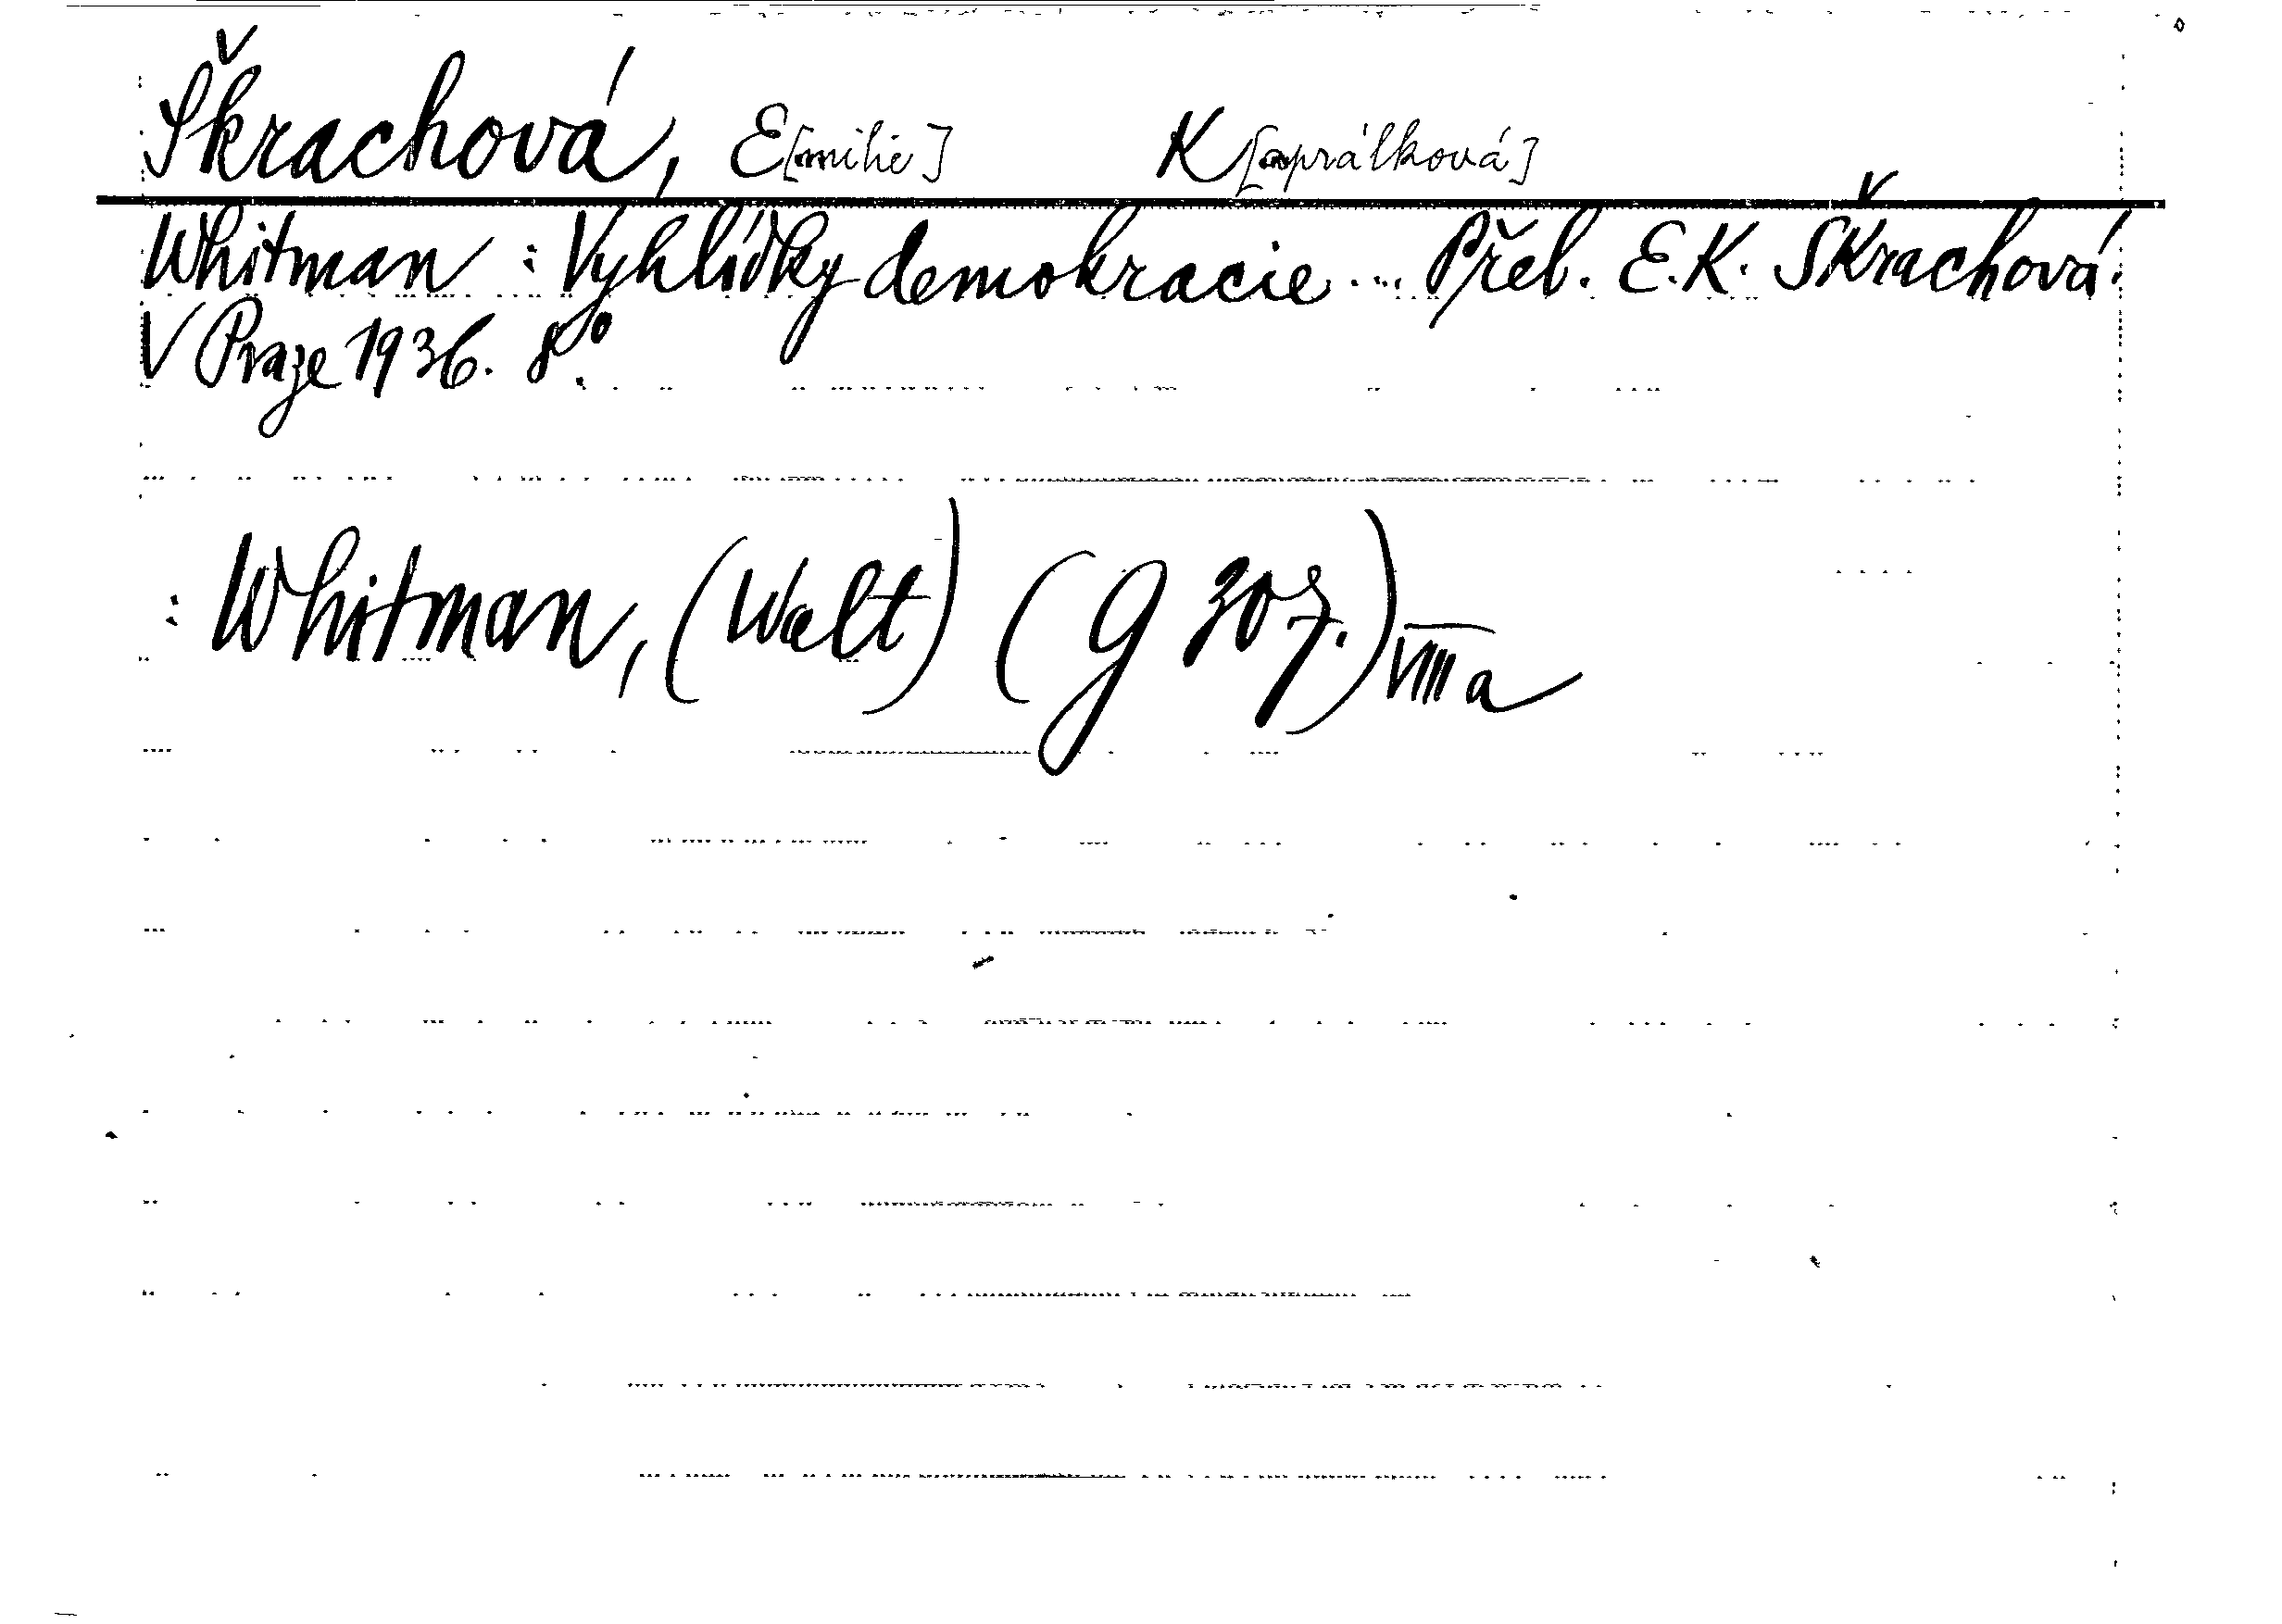 Škrachová, E[milie] K[aprálková]
Whitman : Vyhlídky demokracie ... Přel. E. K. Škrachová.
V Praze 1936. 8°.
: Whitman, (Walt) (G 307.) VIII a